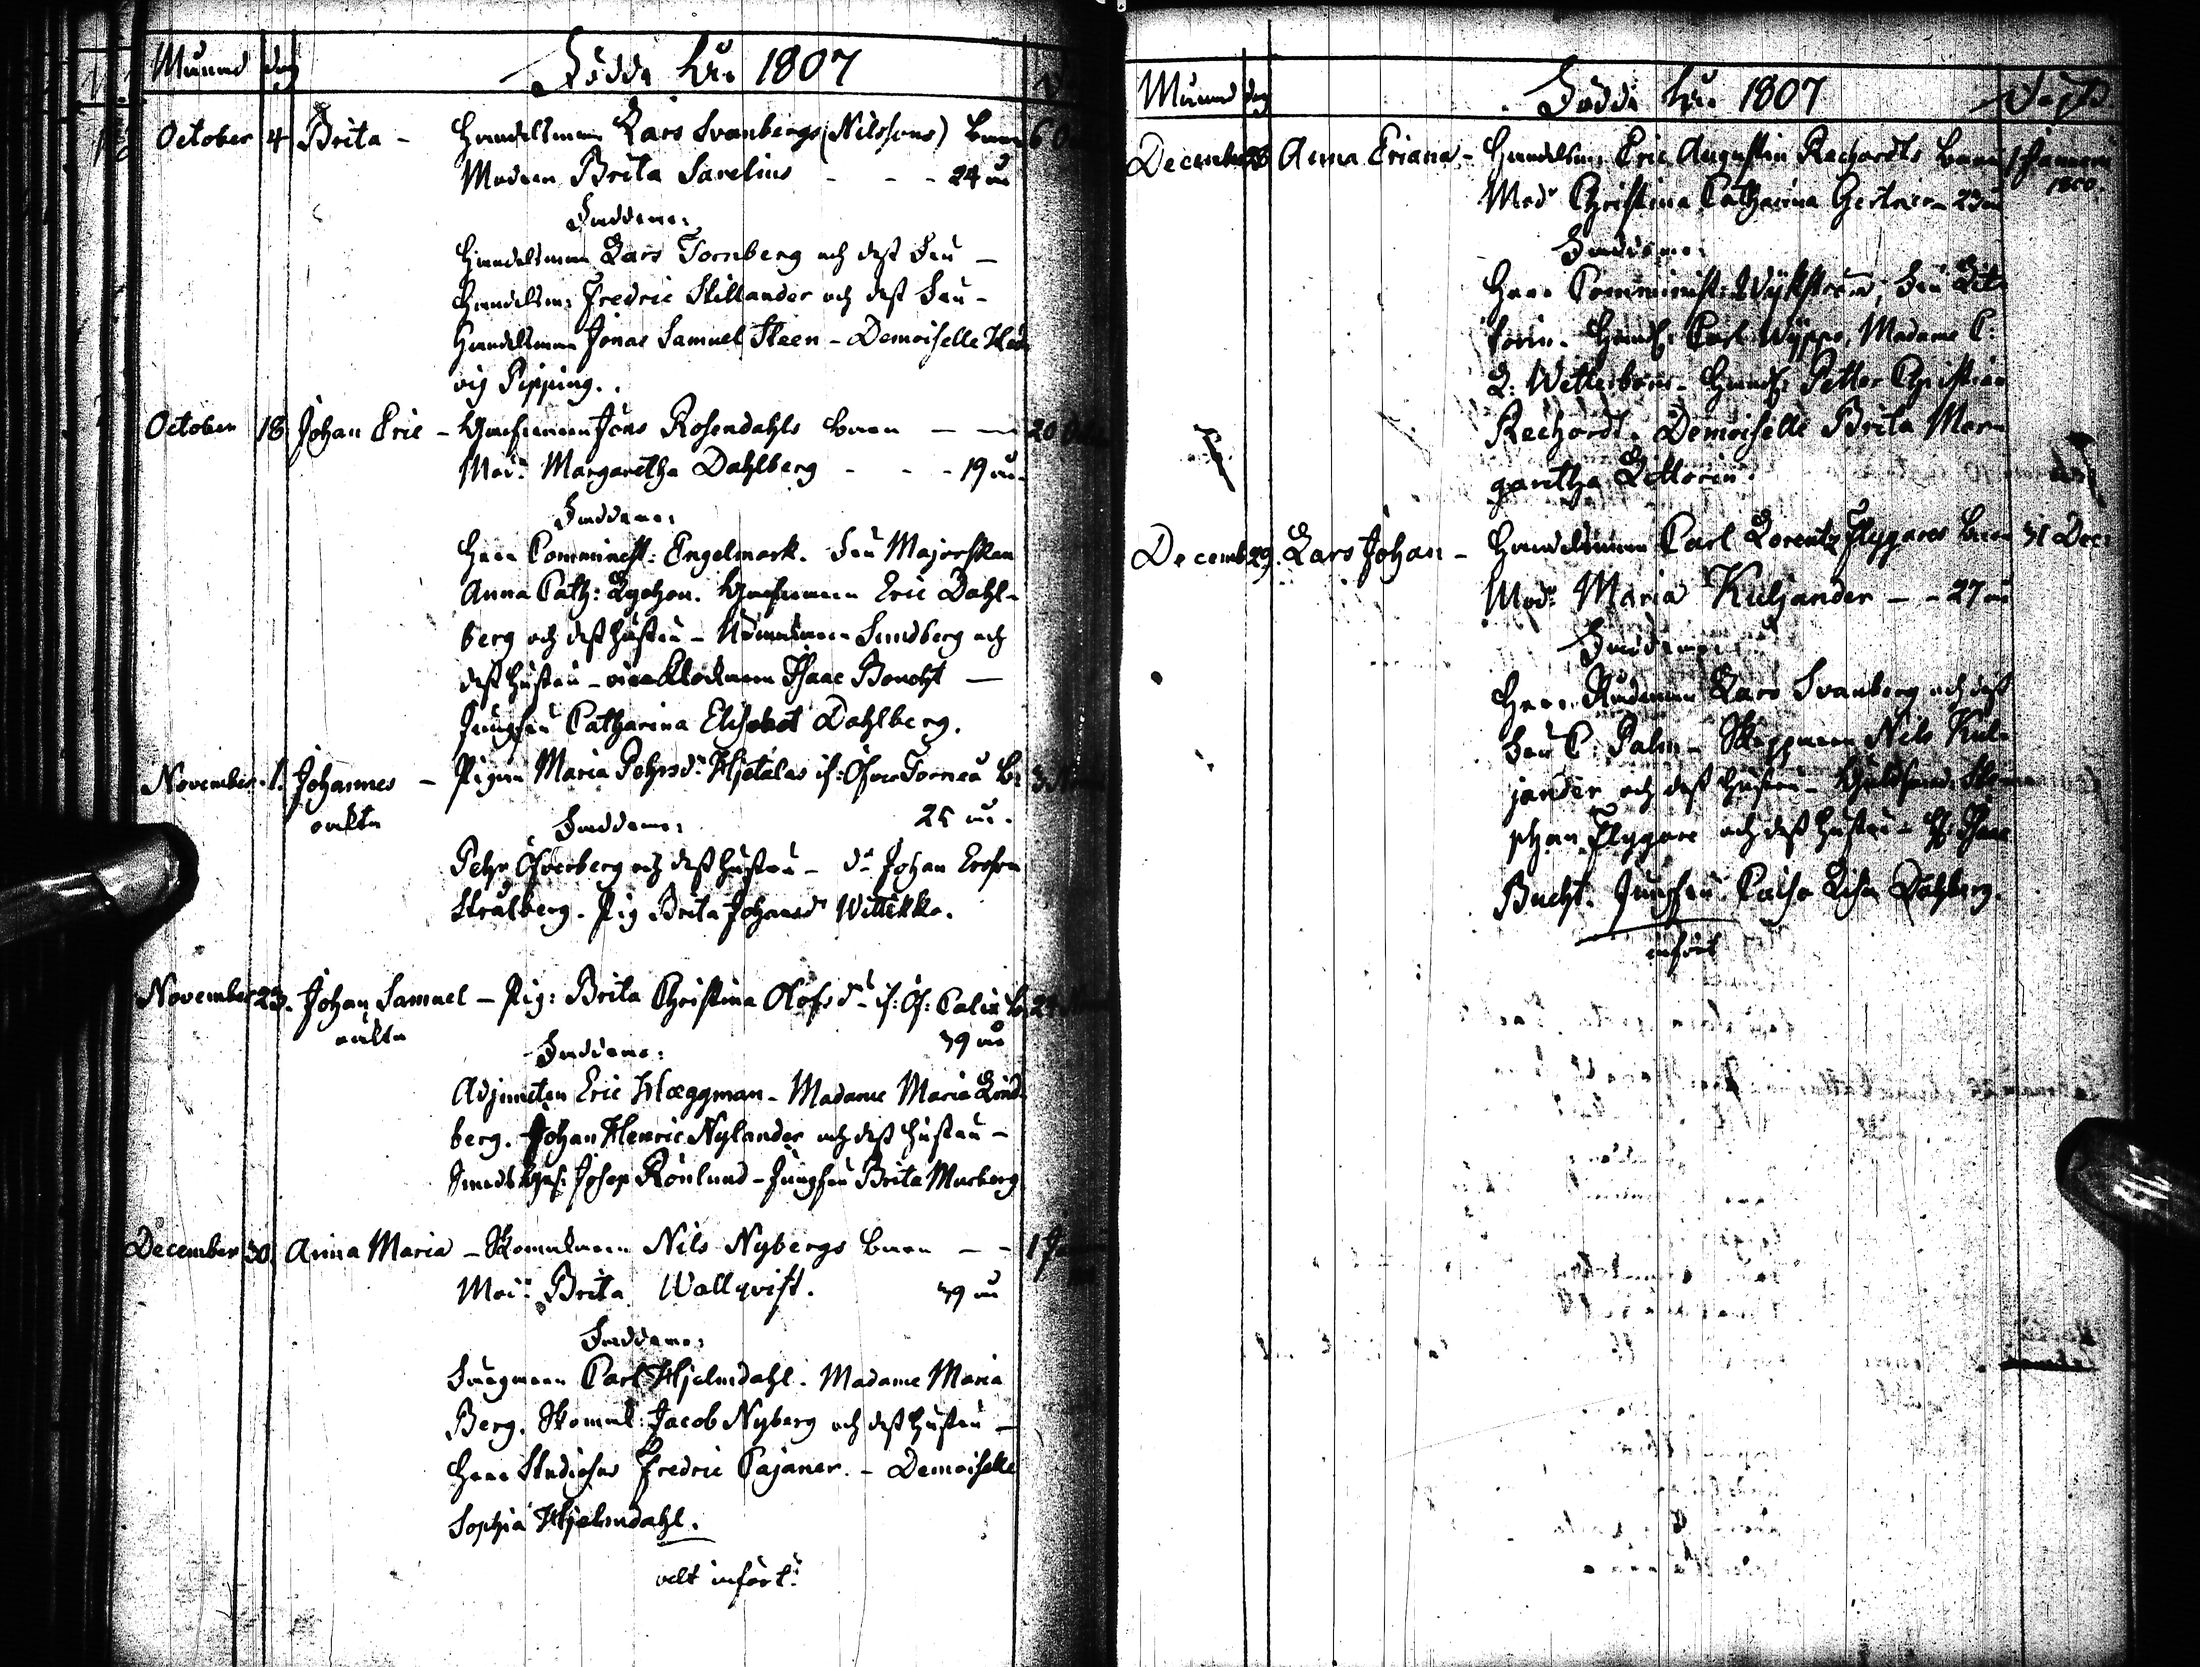 Månad dag Födde År 1807
October 4 Brita - Handelsman Lars Svanbergs (Nilssons) barn 6
Modren Brita Sarelius - - - 24 år
Faddrar:
Handelsman Lars Tornberg och dess Fru -
Handelsm: Fredric Stillander och dess Fru -
Handelsman Jonas Samuel Steen - Demoiselle Hed
vig Pipping.
October 18 Johan Eric - Jöns Rosendahls barn - - 20
Mod: Margaretha Dahlberg - - - 19 år
Faddrar:
Herr Comminist: Engelmark. Fru Majorskan
Anna Cath: Eric Dahl-
berg och dess hustru - Sundberg och
dess hustru - Isaac Boucht -
Jungfru Catharina Elisabet Dahlberg.
November 1. Johannes - Pigan Maria Pehrsdr Hjetalas if: Öfver Torneå b: 3
oäkta
25 år.
Faddrar:
Pehr Öfverberg och dess hustru - dr Johan Ersson
Strålberg. Pig Brita Johansdr Wittikko.
November 23. Johan Samuel - Pig: Brita Christina Olofsdr if: Öf: Calix b:
oäkta
39 år
Faddrar:
Adjuncten Eric Hæggman - Madame Maria Lind-
berg. Johan Henric Nylander och dess hustru -
Josep Rönlund - Jungfru Brita Marberg
December 30. Anna Maria - Skomakaren Nils Nybergs barn - - 1
Mod: Brita Wallqvist. 39 år
Faddrar:
Carl Hjelmdahl. Madame Maria
Berg. Skomak: Jacob Nyberg och dess hustru -
Herr Studiosus Fredric Cajaner. - Demoiselle
Sophia Hjelmdahl.
alt infört.
Månad dag Födde År 1807 Döpte
December 28 Anna Eriana - Handelsm: Eric Augustin Rechardts barn 1 Januari
Modr Christina Catharina Gertner - 23 år
Faddrar:
Herr Comminist: Wijkström, Fru Lit-
torin. Handl: Carl Wijppe, Madame C:
L: Wetterbom - Handl: Petter Christian
Rechardt. Demoiselle Brita Mar-
garetha Littorin.
Decemb 29. Lars Johan - Handelsman Carl Lorentz Flygares barn 31 Dec:
Modr Maria Kuljander - - 27 år
Faddrar:
Herr Rådman Lars Svanberg och dess
Fru C: Palm - Skepparen Nils Kul-
jander och dess hustru - Guldsmed: Ste-
phan Flygare och dess hustru - Isaac
Bucht. Jungfru Caisa Lisa Dahlberg.
infört